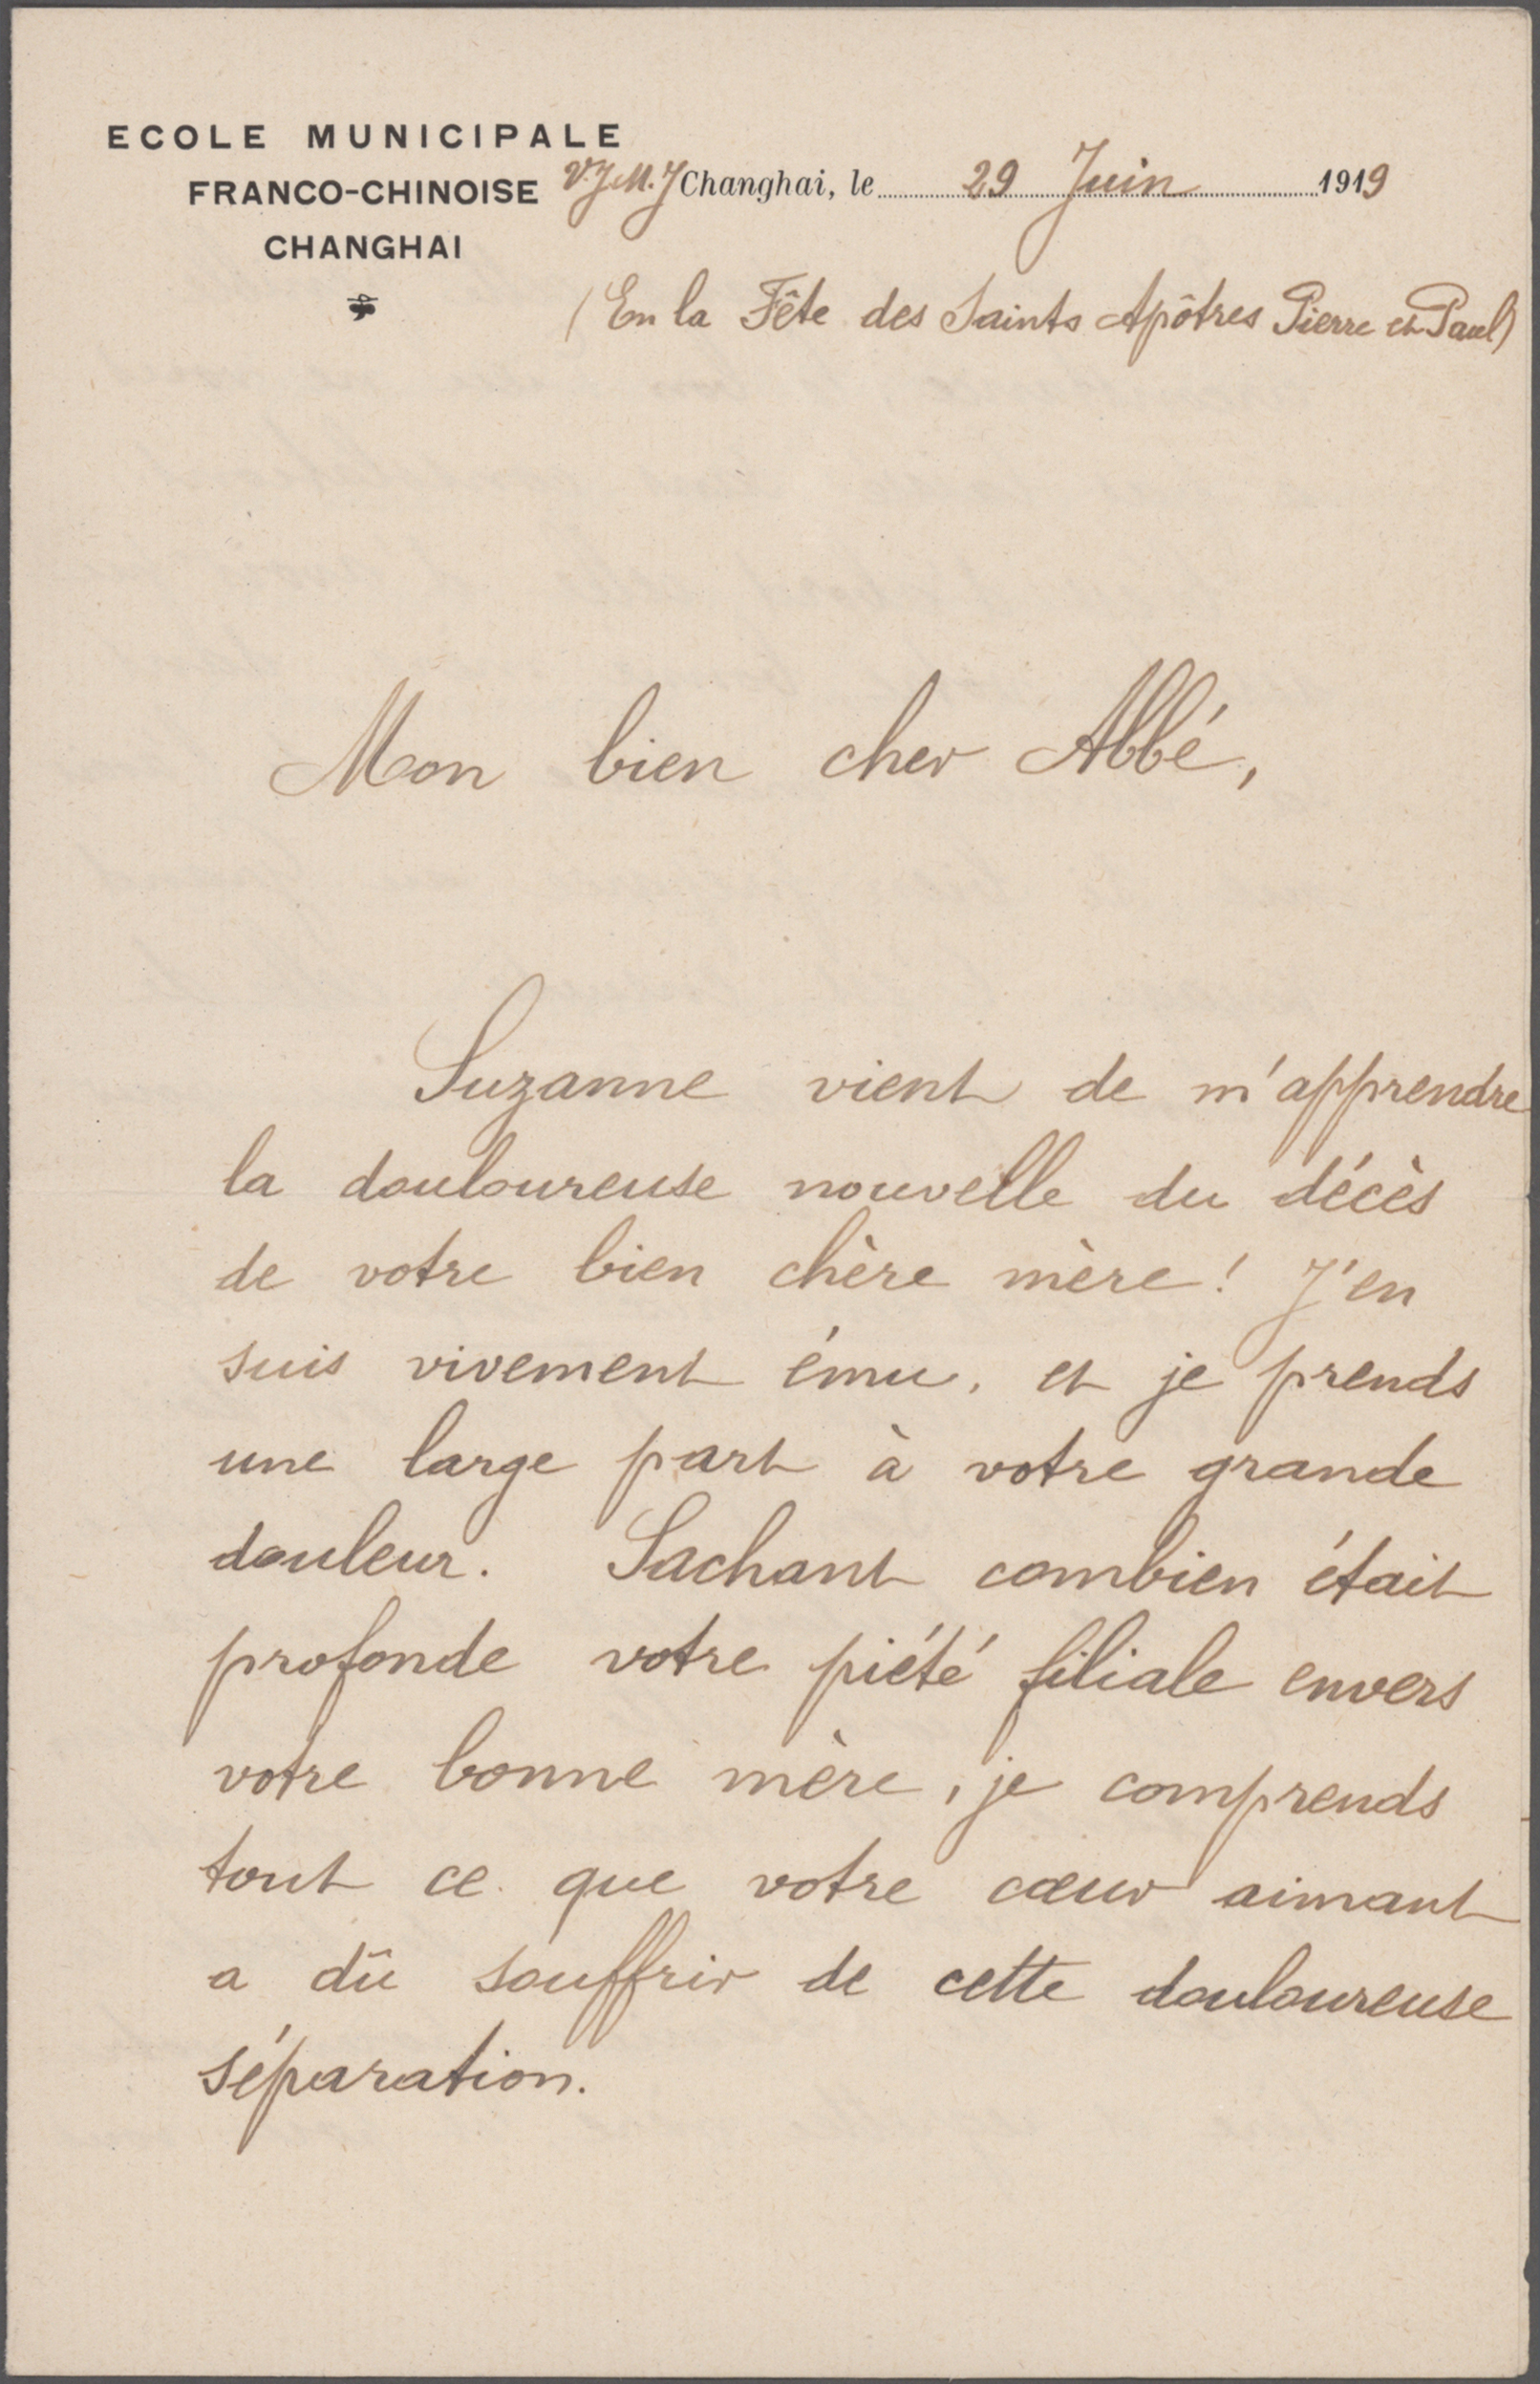 ECOLE MUNICIPALE
FRANCO-CHINOISE
CHANGHAI
V.J.M.J Changhai, le 29 Juin 1919
(En la Fête des Saints Apôtres Pierre et Paul)
Mon bien cher Abbé,
Suzanne vient de m'apprendre
la douloureuse nouvelle du décès
de votre bien chère mère! J'en
suis vivement ému, et je prends
une large part à votre grande
douleur. Sachant combien était
profonde votre piété filiale envers
votre bonne mère, je comprends
tout ce que votre cœur aimant
a dû souffrir de cette douloureuse
séparation.